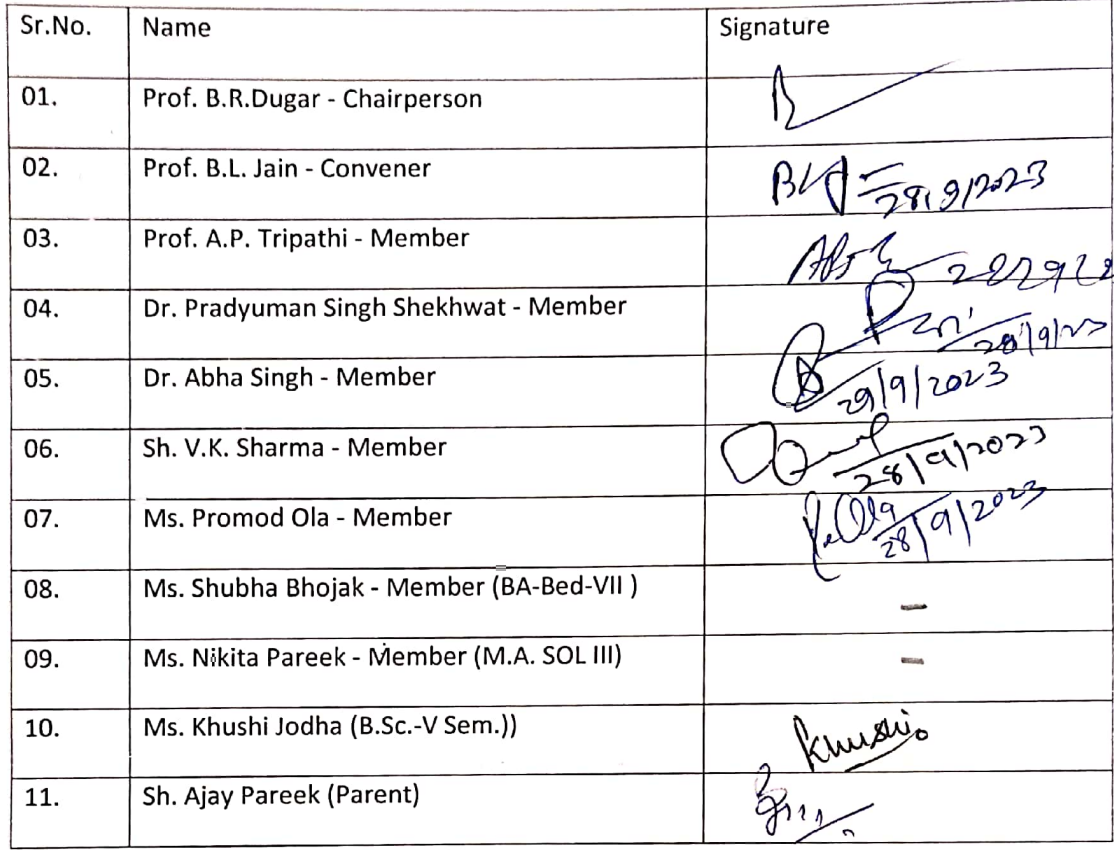 Sr.No. Name Signature
01. Prof. B.R.Dugar - Chairperson
02. Prof. B.L. Jain - Convener 28/9/2023
03. Prof. A.P. Tripathi - Member
04. Dr. Pradyuman Singh Shekhwat - Member 28/9/23
05. Dr. Abha Singh - Member 29/9/2023
06. Sh. V.K. Sharma - Member 28/9/2023
07. Ms. Promod Ola - Member P.Ola 28/9/2023
08. Ms. Shubha Bhojak - Member (BA-Bed-VII ) -
09. Ms. Nikita Pareek - Member (M.A. SOL III) -
10. Ms. Khushi Jodha (B.Sc.-V Sem.)) Khushi
11. Sh. Ajay Pareek (Parent)